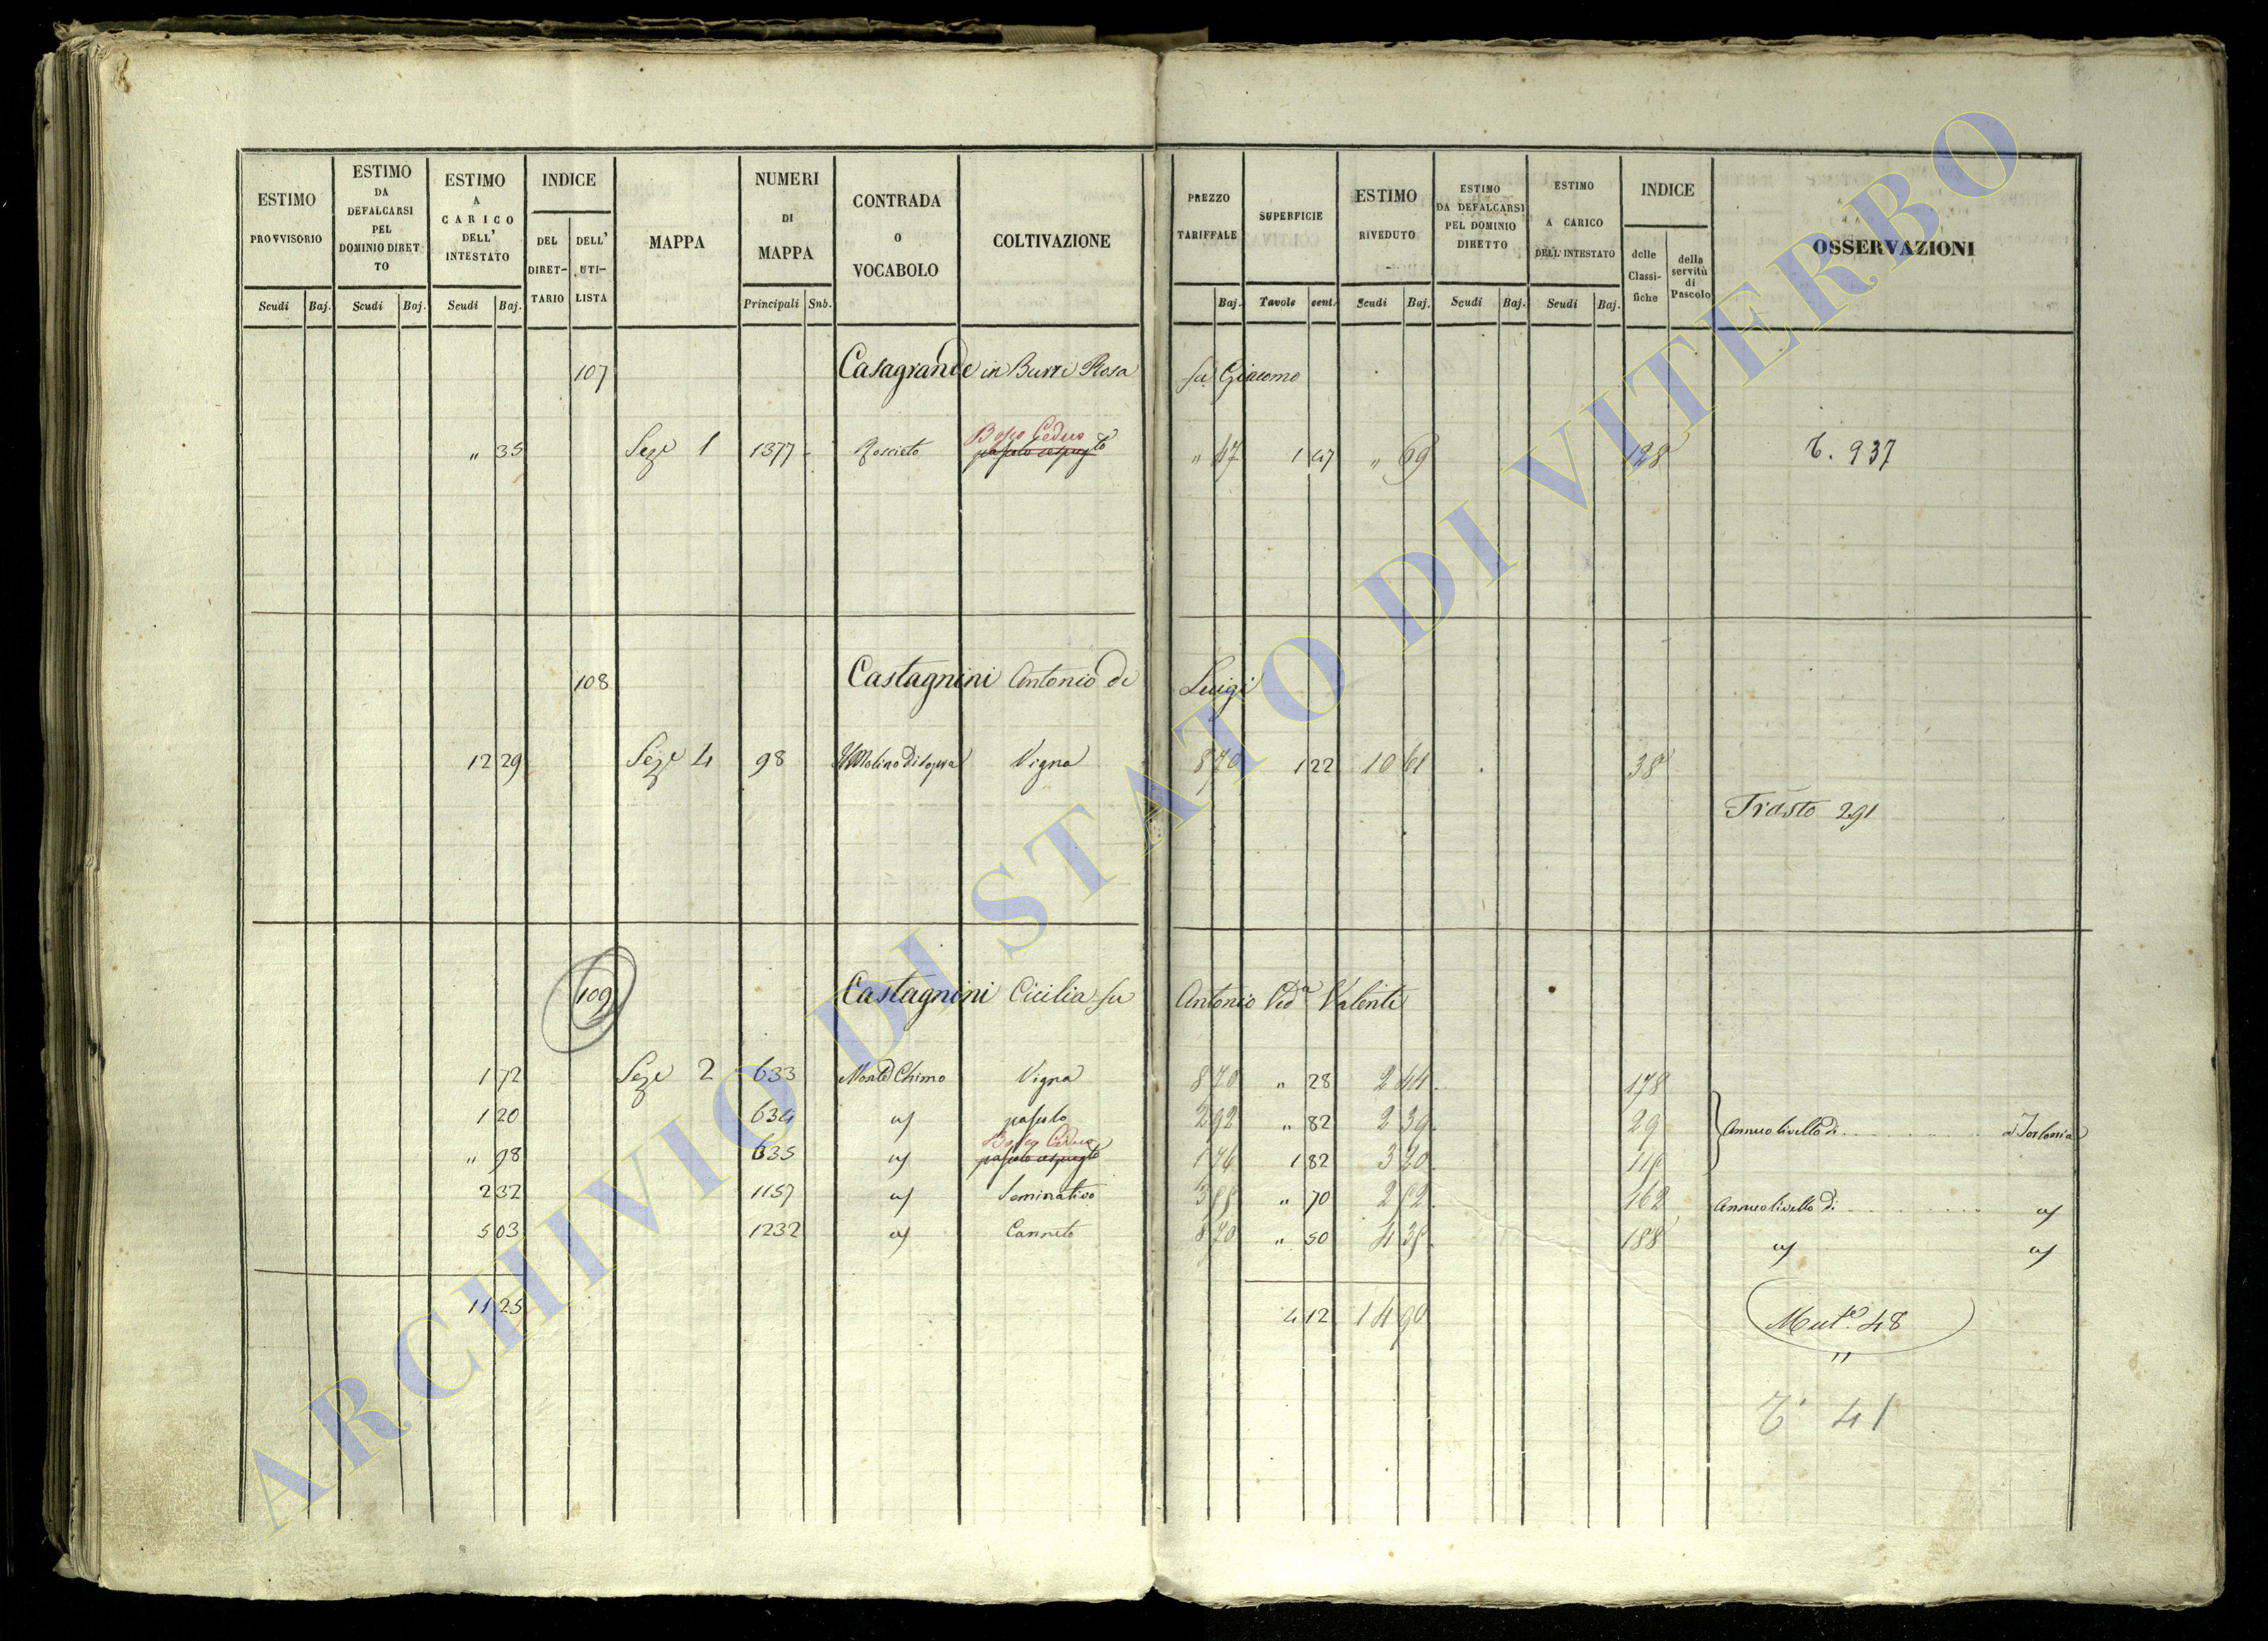 ESTIMO PROVVISORIO Scudi Baj.
ESTIMO DA DEFALCARSI PEL DOMINIO DIRETTO Scudi Baj.
ESTIMO A CARICO DELL' INTESTATO Scudi Baj.
INDICE DEL DIRET-TARIO DELL' UTI-LISTA
MAPPA
NUMERI DI MAPPA Principali Snb.
CONTRADA O VOCABOLO
COLTIVAZIONE
PREZZO TARIFFALE Baj.
SUPERFICIE Tavole cent.
ESTIMO RIVEDUTO Scudi Baj.
ESTIMO DA DEFALCARSI PEL DOMINIO DIRETTO Scudi Baj.
ESTIMO A CARICO DELL'INTESTATO Scudi Baj.
INDICE delle Classi-fiche della servitù di Pascolo
OSSERVAZIONI
107 Casagrande in Burri Rosa fu Giacomo
" 35 Seze 1 1377 Roscieto Bosco Ceduo " 47 1 47 " 69 128 T. 937
108 Castagnini Antonio di Luigi
12 29 Seze 4 98 Molino di sopra Vigna 8 70 1 22 10 61 38
Trasto 291
109 Castagnini Cicilia fu Antonio Veda Valenti
1 72 Seze 2 633 Monte Chimo Vigna 8 70 " 28 2 44 178
1 20 634 pascolo 2 92 " 82 2 39 29 Annuo livello di a Torlonia
" 98 635 Bosco Ceduo 1 76 1 82 3 20 118
2 32 1157 Seminativo 3 88 " 70 2 62
5 03 1232 Canneto 8 70 " 50 4 35 188
Annuo livello di
11 25 4 12 14 90
Mute. 48
T. 41
ARCHIVIO DI STATO DI VITERBO